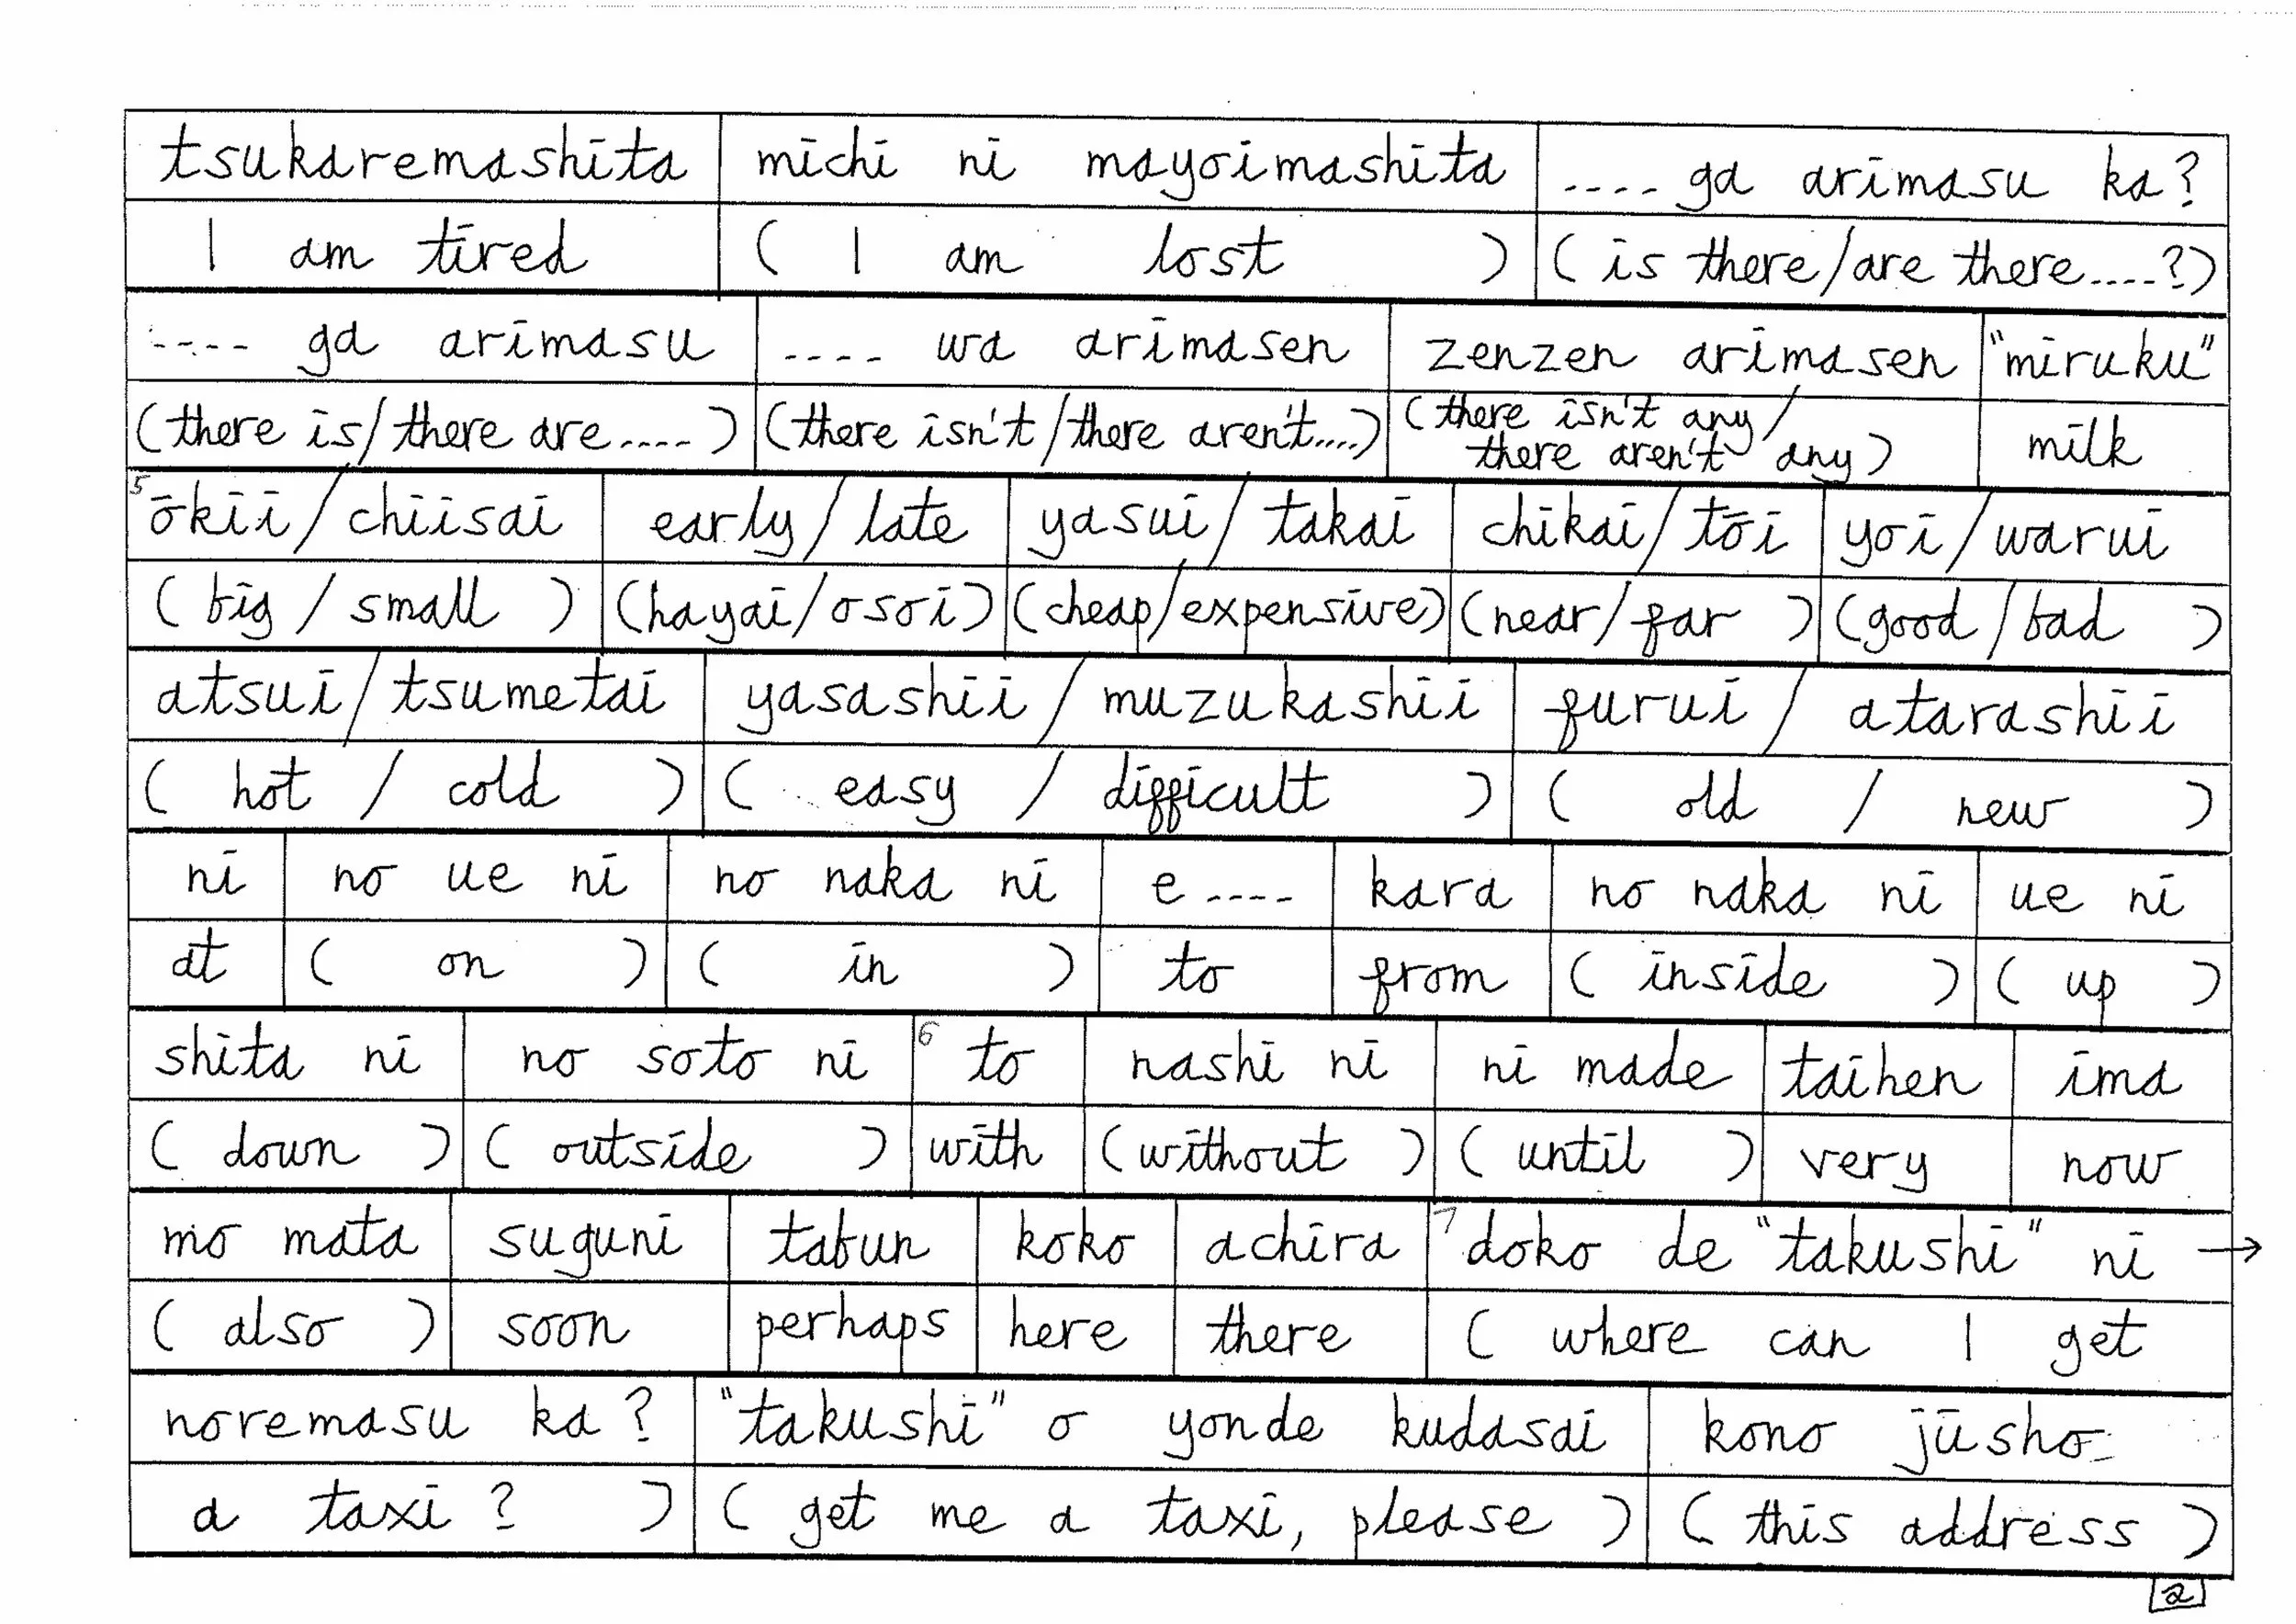 tsukaremashita michi ni mayoimashita .... ga arimasu ka?
I am tired ( I am lost ) (is there/are there....?)
---- ga arimasu ---- wa arimasen zenzen arimasen "miruku"
(there is/there are....) (there isn't/there aren't....) (there isn't any/ there aren't any) milk
5 ōkii/chiisai early/late yasui/takai chikai/tōi yoi/warui
(big/small) (hayai/osoi) (cheap/expensive) (near/far) (good/bad)
atsui/tsumetai yasashii/muzukashii furui/atarashii
(hot/cold) (easy/difficult) (old/new)
ni no ue ni no naka ni e---- kara no naka ni ue ni
at (on) (in) to from (inside) (up)
shita ni no soto ni 6 to nashi ni ni made taihen ima
(down) (outside) with (without) (until) very now
mo mata suguni tabun koko achira 7 doko de "takushi" ni →
(also) soon perhaps here there (where can I get
noremasu ka? "takushi" o yonde kudasai kono jūsho
a taxi?) (get me a taxi, please) (this address)
2